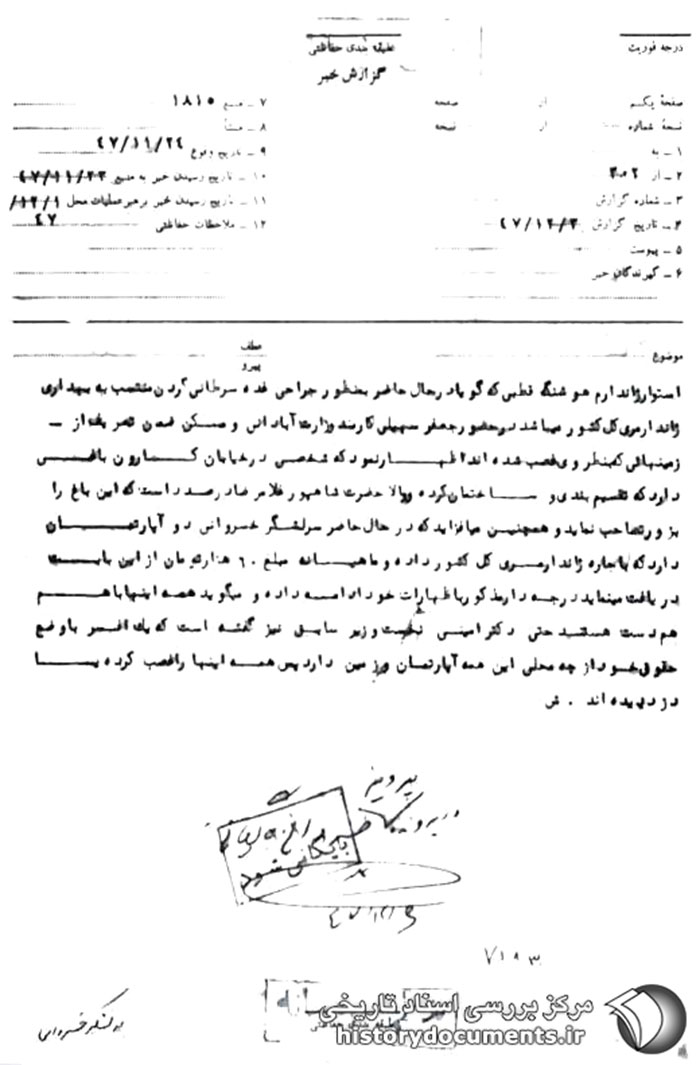 درجه فوریت
طبقه بندی حفاظتی
گزارش خبر
صفحهٔ یکم از صفحه
نسخهٔ شماره از نسخه
۱ ـ به
۲ ـ از ۳۰۲
۳ ـ شماره گزارش
۴ ـ تاریخ گزارش ۴۷/۱۲/۳
۵ ـ پیوست
۶ ـ گیرندگان خبر
۷ ـ منبع ۱۸۱۵
۸ ـ منشأ
۹ ـ تاریخ وقوع ۴۷/۱۱/۲۴
۱۰ ـ تاریخ رسیدن خبر به منبع ۴۷/۱۱/۲۳
۱۱ ـ تاریخ رسیدن خبر برهبر عملیات محل ۱۲/۱/
۴۷
۱۲ ـ ملاحظات حفاظتی
موضوع
عطف
پیرو
استوار ژاندارم هوشنگ قطبی که گویا در حال حاضر بمنظور جراحی غده سرطانی گردن منتسب به بهداری
ژاندارمری کل کشور میباشد در حضور جعفر سهیلی کارمند وزارت آبادانی و مسکن ضمن تعریف از ـ
زمینهائی که بنظر وی غصب شده اند اظهار نمود که شخصی در خیابان کارون باغی
دارد که تقسیم بندی و ساختمان کرده و والا حضرت شاهپور غلامرضا در صدد است که این باغ را
بزور تصاحب نماید و همچنین میافزاید که در حال حاضر سرلشگر خسروانی دو آپارتمان
دارد که باجاره ژاندارمری کل کشور داده و ماهیانه مبلغ ۶۰ هزار تومان از این بابت
دریافت مینماید درجه دار مذکور باظهارات خود ادامه داده و میگوید همه اینها با هم
هم دست هستند حتی دکتر امینی نخست وزیر سابق نیز گفته است که یك افسر با وضع
حقوقی خود از چه محلی این همه آپارتمان و زمین دارد پس همه اینها را غصب کرده یا
دزدیده اند . ش
در پرونده
بایگانی شود
۷۱۹۳
مرکز بررسی اسناد تاریخی
historydocuments.ir